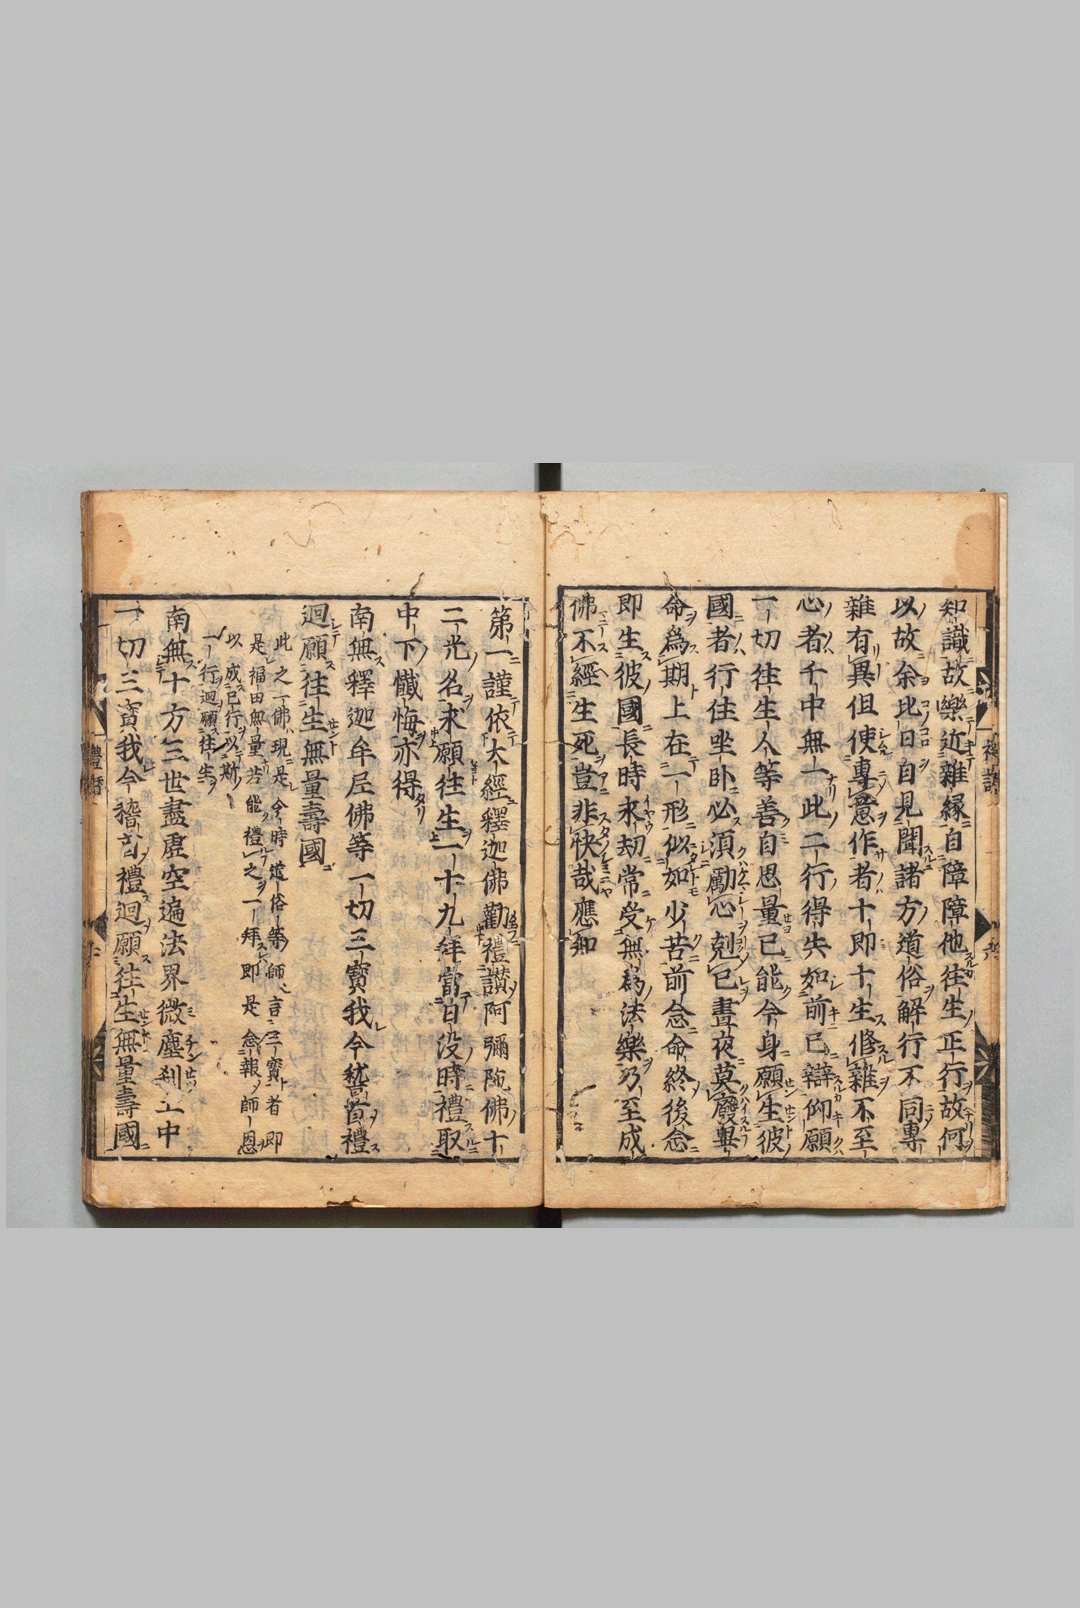 知識故樂近雜縁自障障他往生正行故何
以故余比日自見聞諸方道俗解行不同專
雜有異但使專意作者十即十生修雜不至
心者千中無一此二行得失如前已辯仰願
一切往生人等善自思量已能今身願生彼
國者行住坐卧必湏勵心剋已晝夜莫廢畢
命爲期上在一形似如少苦前念命終後念
即生彼國長時永劫常受無爲法樂乃至成
佛不經生死豈非快哉應知
第一謹依大經釋迦佛勸禮讃阿彌陀佛十
二光名求願往生一十九拜當日没時禮取
中下懺悔亦得
南無釋迦牟尼佛等一切三寳我今稽首禮
迴願往生無量壽國
此之一佛現是今時道俗等師言三寳者即
是福田無量若能禮之一拜即是念報師恩
以成已行以斯
一行迴願往生
南無十方三世盡虛空遍法界微塵刹土中
一切三寳我今稽首禮迴願往生無量壽國